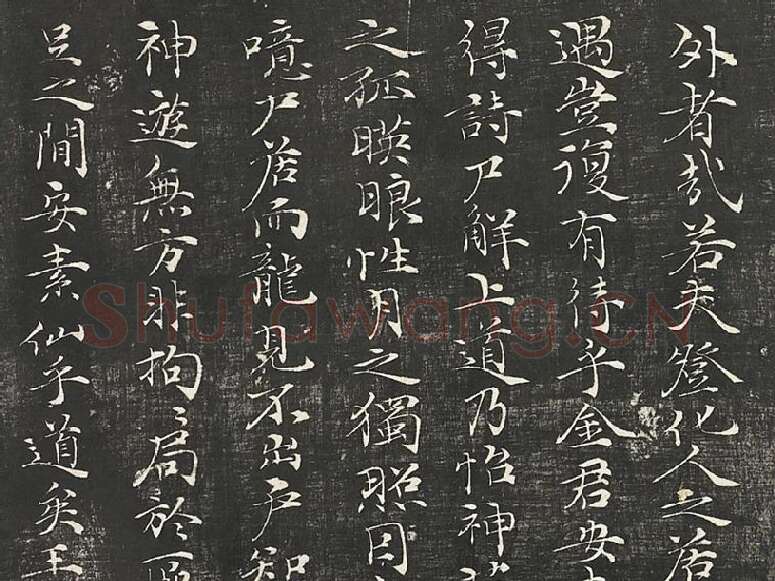 外者哉若夫登化人之居
遇豈復有待乎金君安
得詩尸解上道乃怡神
之孤暎眼性月之獨照因
噫尸居而龍見不出戶知
神遊無方非拘〻局於
之間安素仙乎道矣王
Shufawang.CN